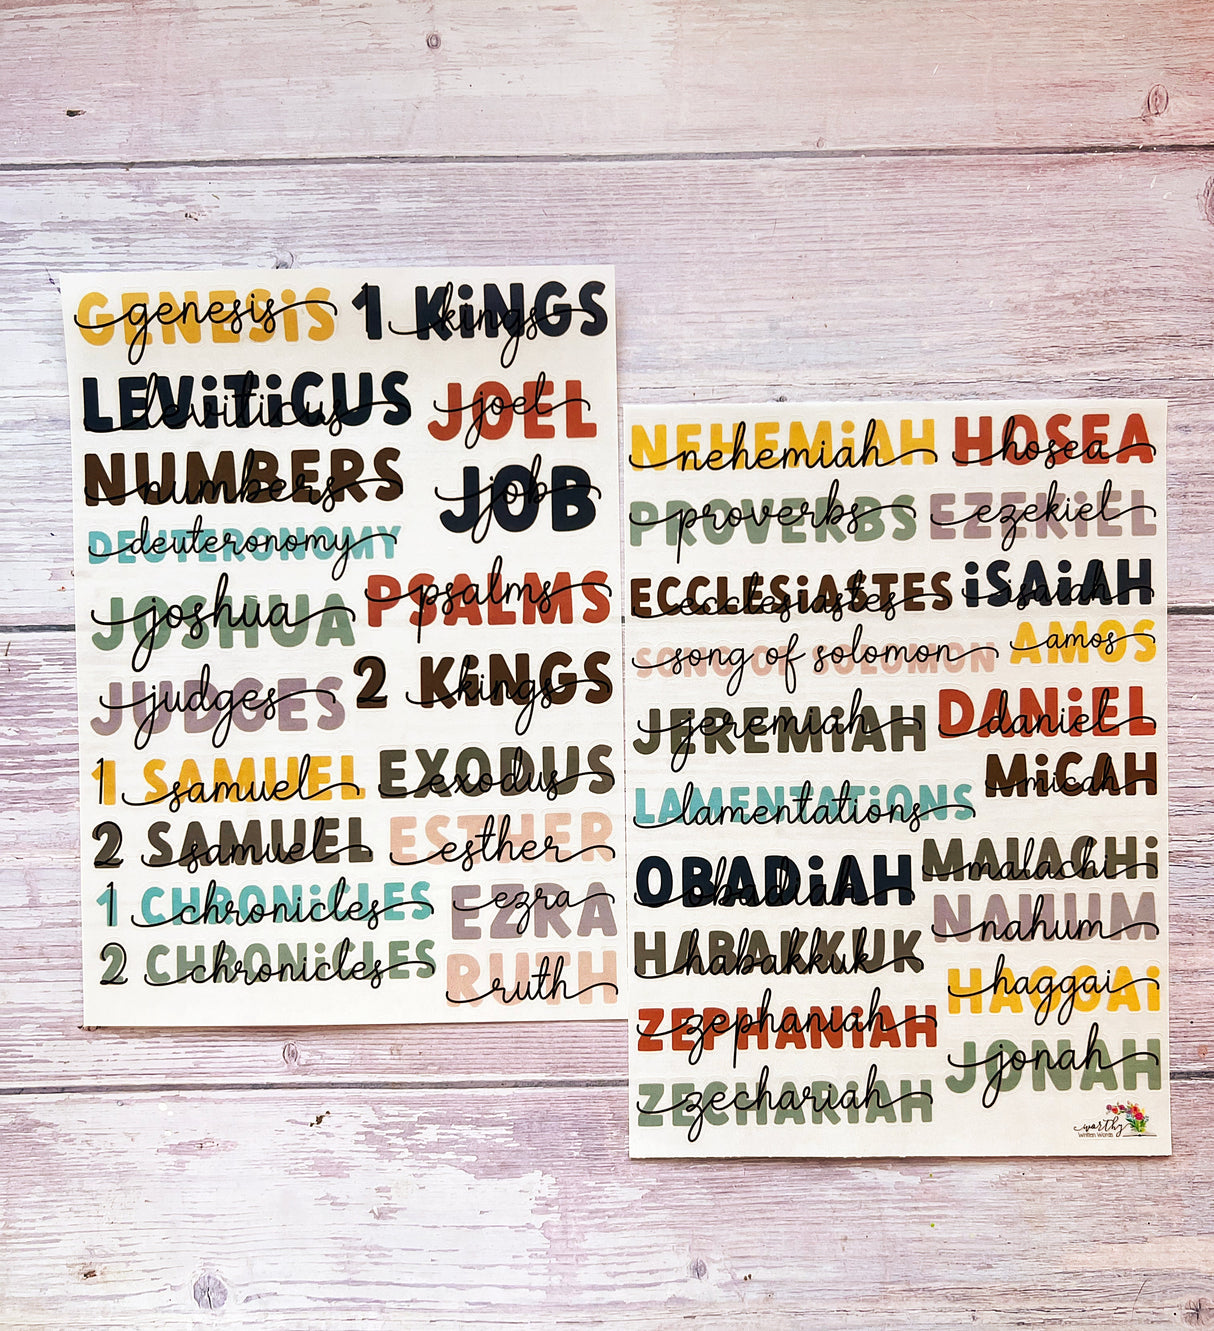 GENESiS genesis
LEViTiCUS leviticus
NUMBERS numbers
DEUTERONOMY deuteronomy
JOSHUA joshua
JUDGES judges
1 SAMUEL samuel
2 SAMUEL samuel
1 CHRONiCLES chronicles
2 CHRONiCLES chronicles
1 KiNGS kings
JOEL joel
JOB job
PSALMS psalms
2 KiNGS kings
EXODUS exodus
ESTHER esther
EZRA ezra
RUTH ruth
NEHEMiAH nehemiah
PROVERBS proverbs
ECCLESiASTES ecclesiastes
SONG OF SOLOMON song of solomon
JEREMiAH jeremiah
LAMENTATiONS lamentations
OBADiAH obadiah
HABAKKUK habakkuk
ZEPHANiAH zephaniah
ZECHARiAH zechariah
HOSEA hosea
EZEKiEL ezekiel
iSAiAH isaiah
AMOS amos
DANiEL daniel
MiCAH micah
MALACHi malachi
NAHUM nahum
HAGGAi haggai
JONAH jonah
worthy
Written Words